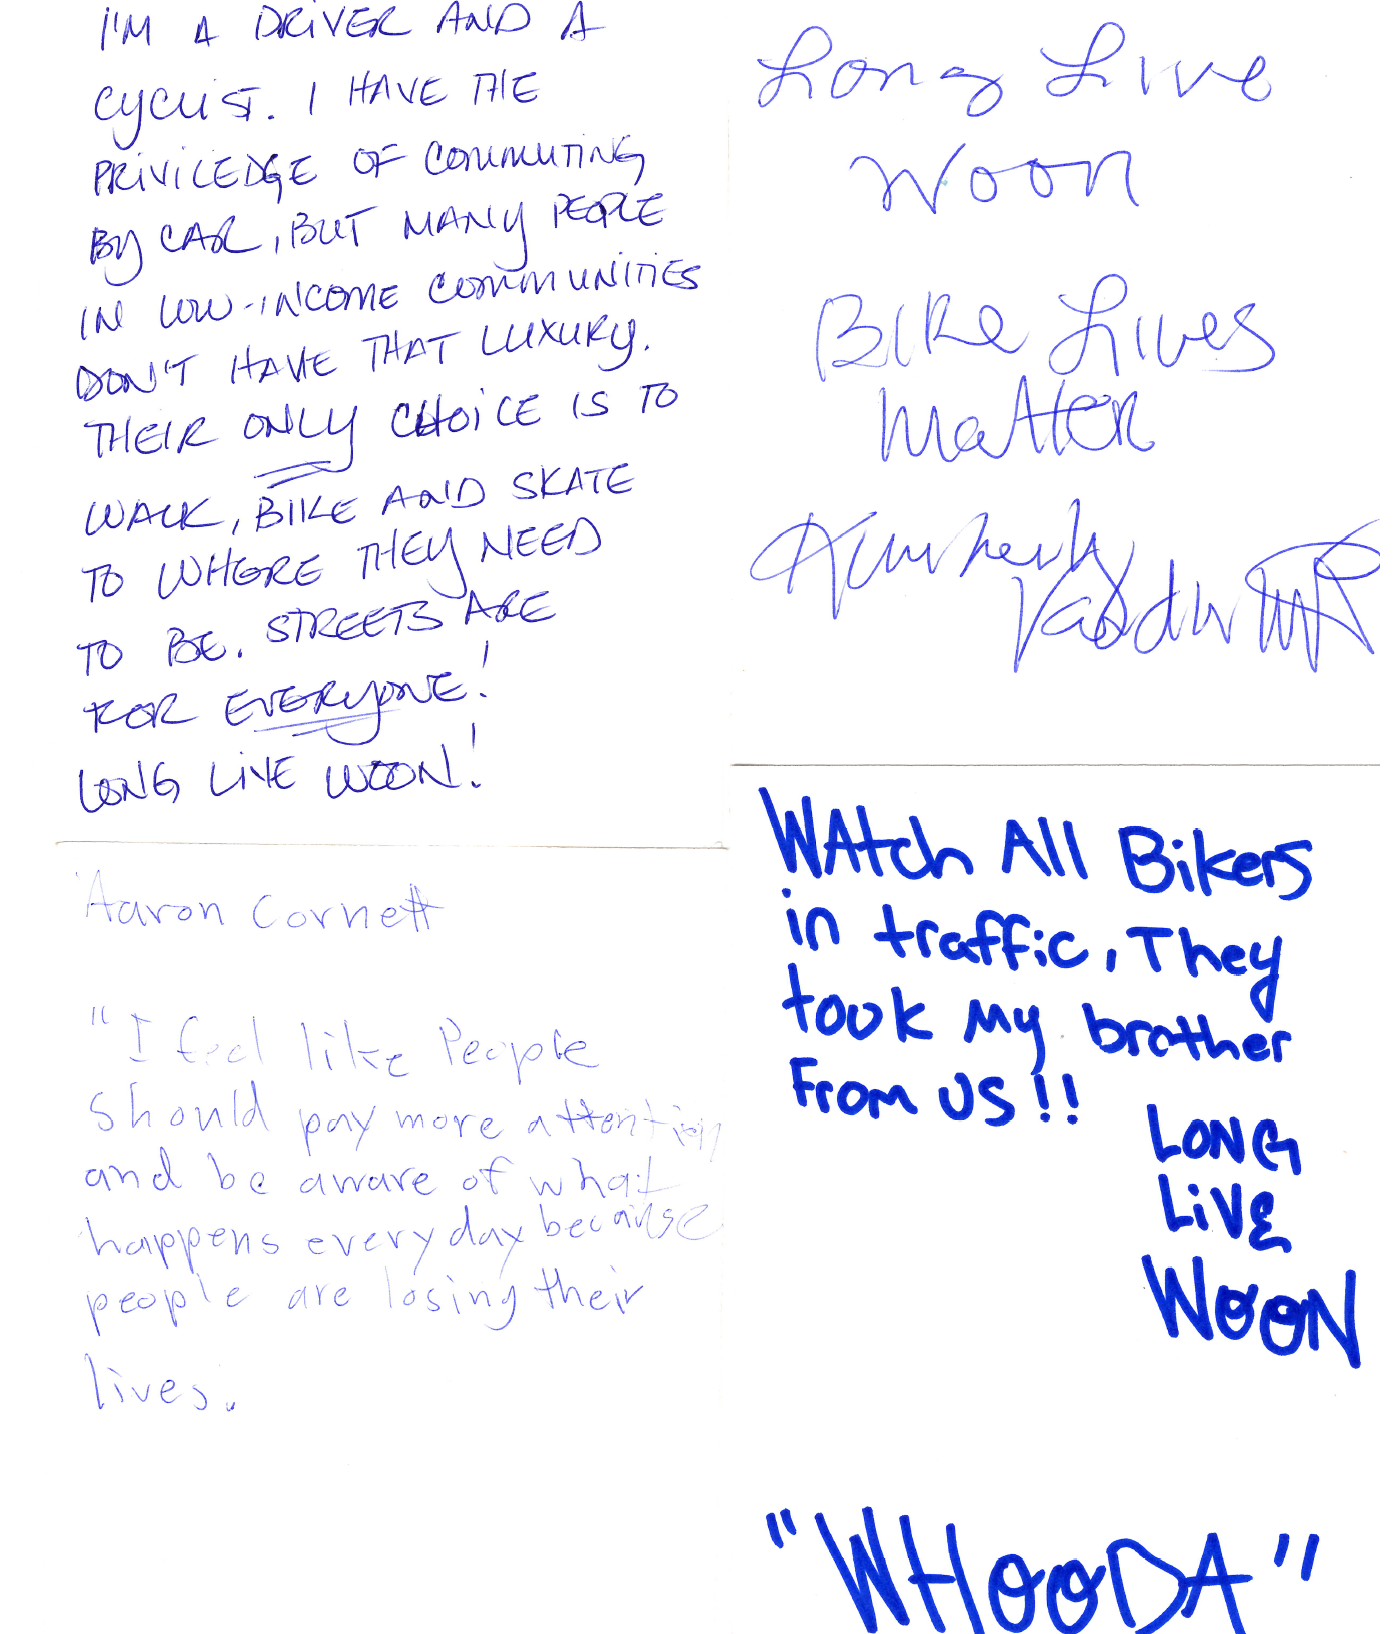 I'M A DRIVER AND A
CYCLIST. I HAVE THE
PRIVILEDGE OF COMMUTING
BY CAR, BUT MANY PEOPLE
IN LOW-INCOME COMMUNITIES
DON'T HAVE THAT LUXURY.
THEIR ONLY CHOICE IS TO
WALK, BIKE AND SKATE
TO WHERE THEY NEED
TO BE. STREETS ARE
FOR EVERYONE!
LONG LIVE WOON!
Long Live
Woon
Bike Lives
Matter
Kimberly
Aaron Cornett
"I feel like People
should pay more attention
and be aware of what
happens everyday because
people are losing their
lives.
WAtch All Bikers
in traffic, They
took My brother
From US!!
LONG
LiVE
WOON
"WHOODA"